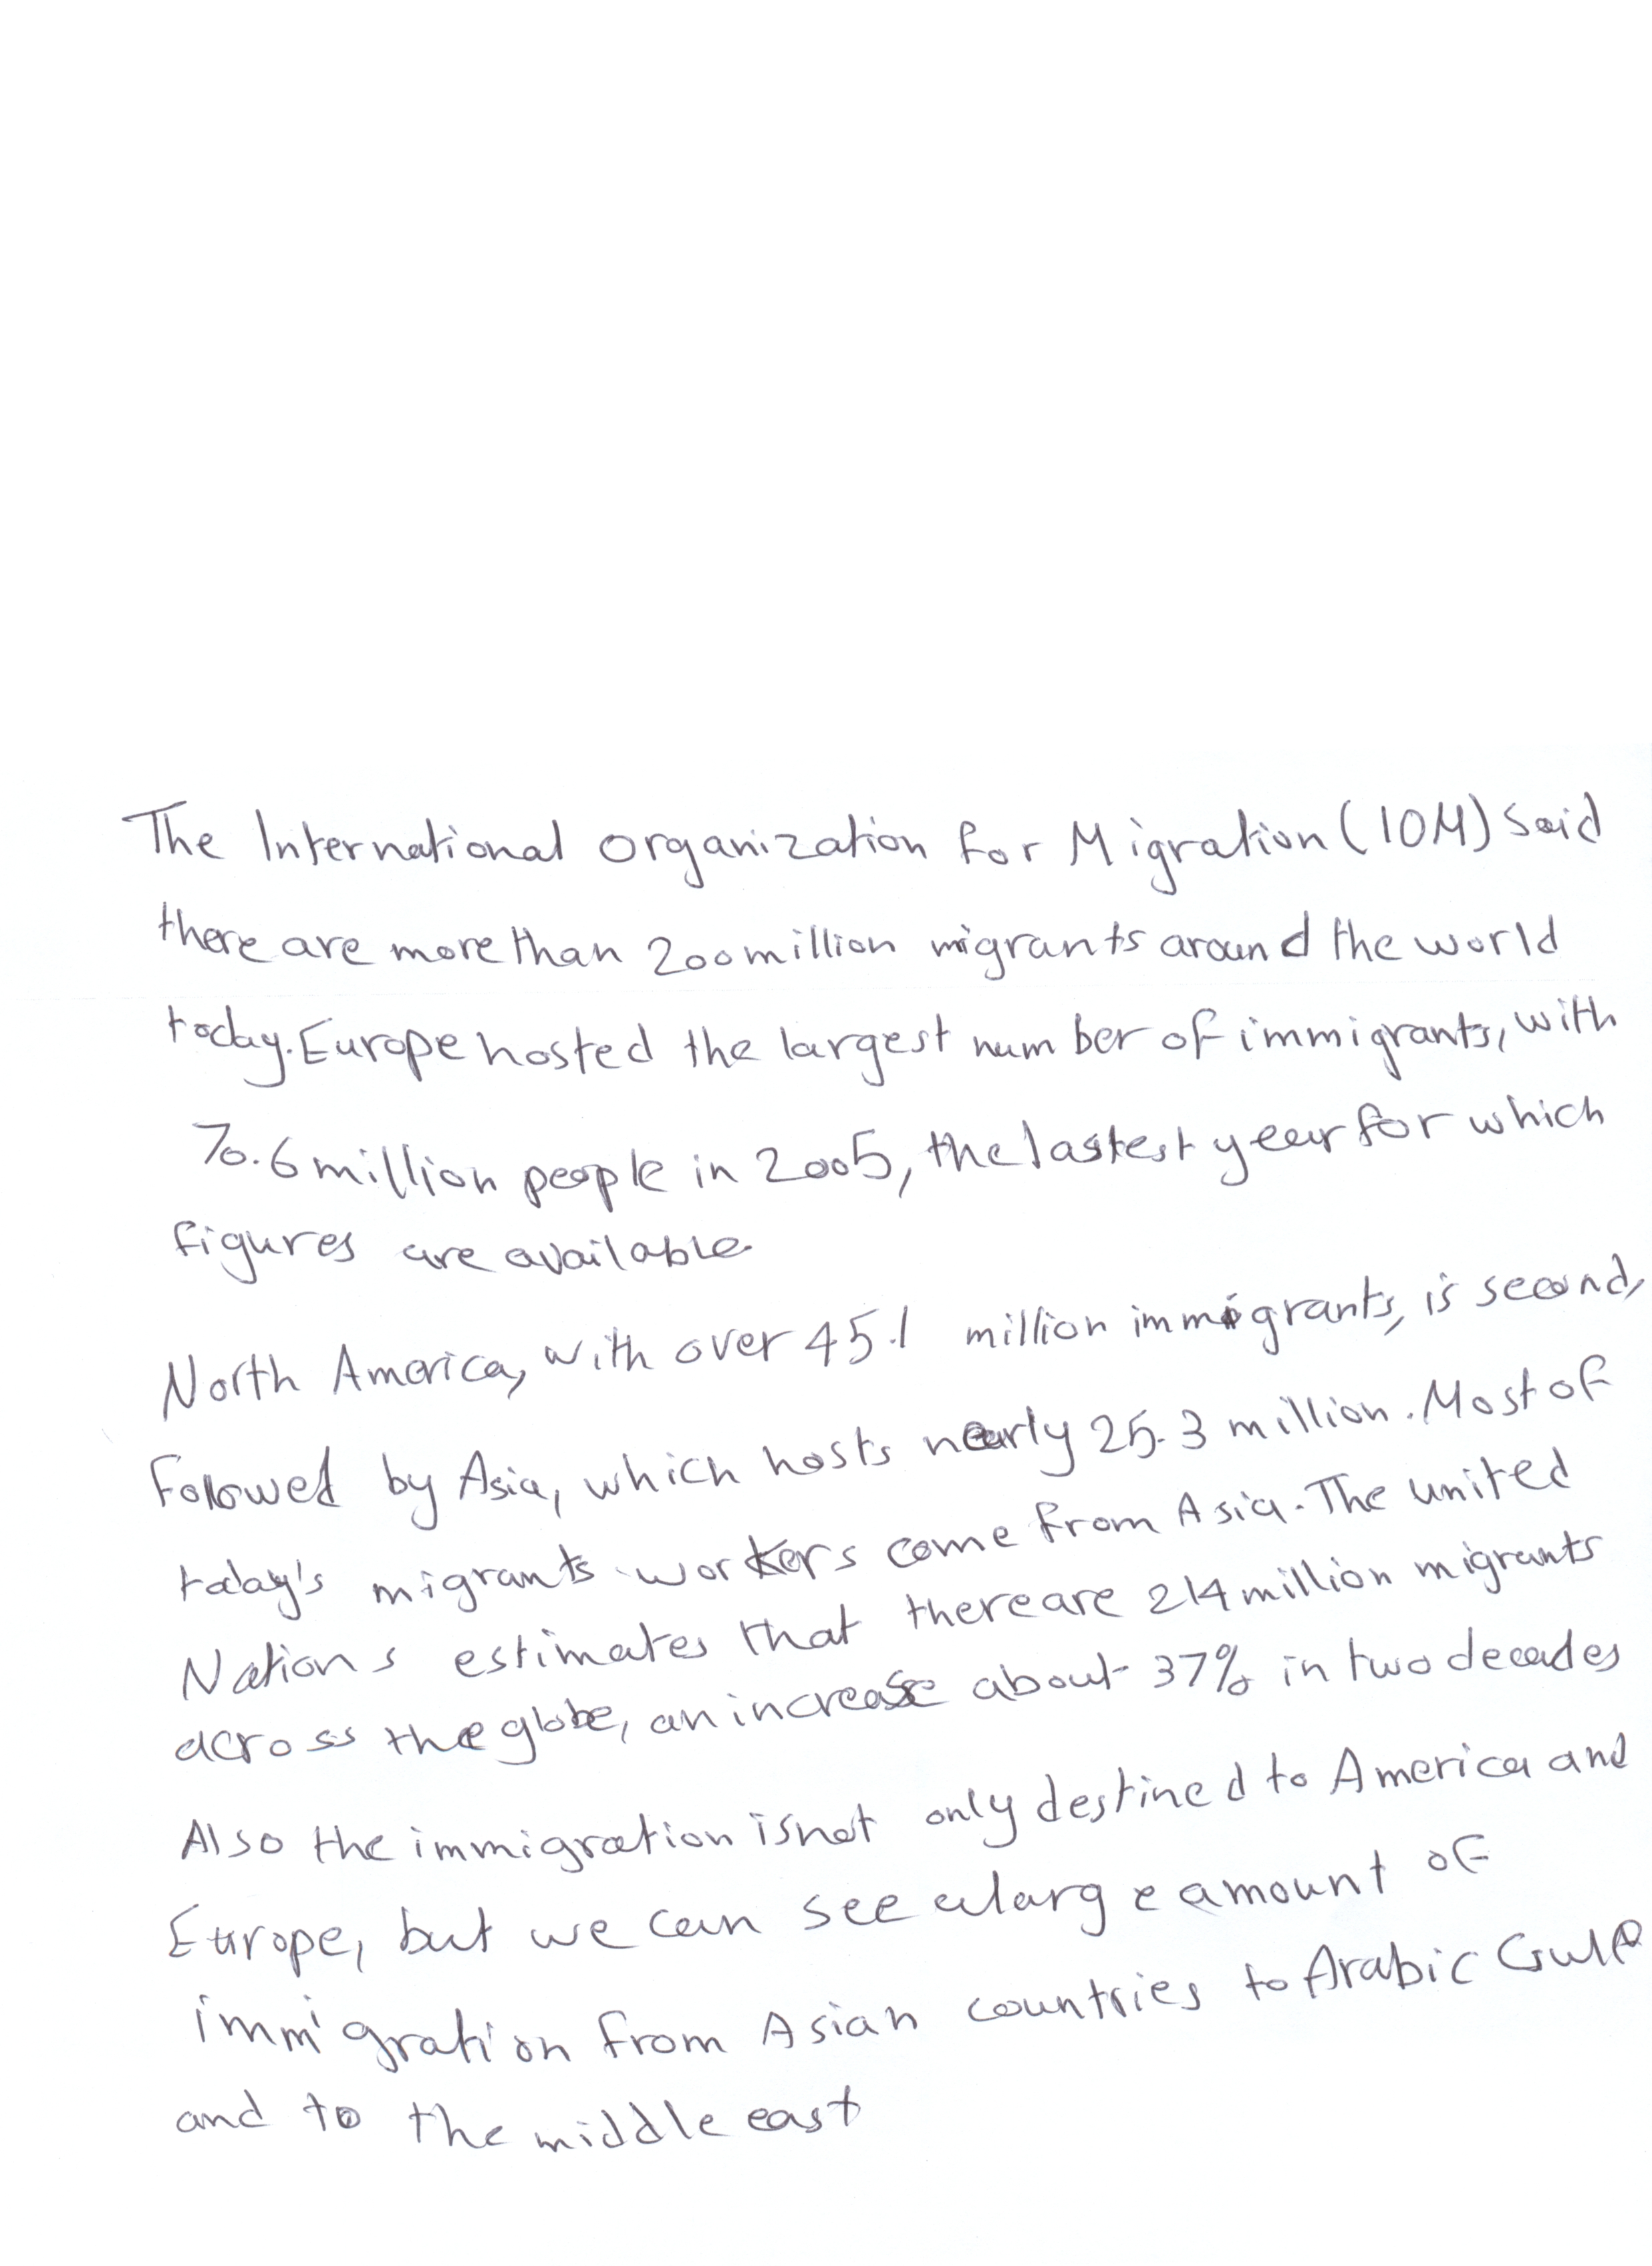 The International organization for Migration (IOM) Said
there are more than 200 million migrants around the world
today. Europe hosted the largest number of immigrants, with
70.6 million people in 2005, the lastest year for which
figures are available.
North America, with over 45.1 million immigrants, is second,
Followed by Asia, which hosts nearly 25.3 million. Most of
today's migrants workers come from Asia. The united
Nations estimates that there are 214 million migrants
across the globe, an increase about 37% in two decades
Also the immigration is not only destined to America and
Europe, but we can see a large amount of
immigration from Asian countries to Arabic Gulf
and to the middle east